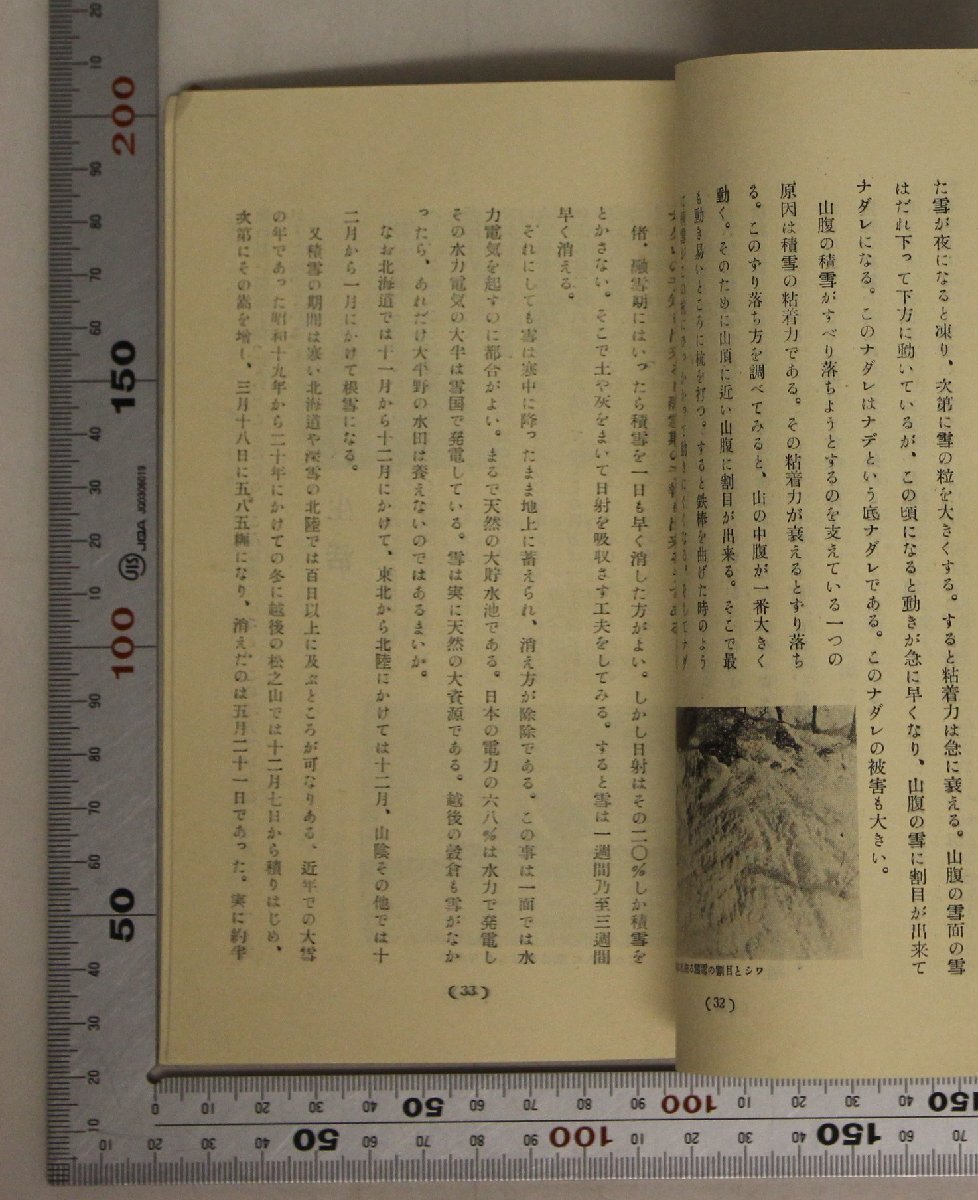 た雪が夜になると凍り、次第に雪の粒を大きくする。すると粘着力は急に衰える。山腹の雪面の雪
はだれ下って下方に動いているが、この頃になると動きが急に早くなり、山腹の雪に割目が出来て
ナダレになる。このナダレはナデという底ナダレである。このナダレの被害も大きい。
山腹の積雪がすべり落ちようとするのを支えている一つの
原因は積雪の粘着力である。その粘着力が衰えるとずり落ち
る。このずり落ち方を調べてみると、山の中腹が一番大きく
動く。そのために山頂に近い山腹に割目が出来る。そこで最
も動き易いところに杭を打つ。すると鉄棒を曲げた時のよう
の割目とシワ
(32)
偖、融雪期にはいったら積雪を一日も早く消した方がよい。しかし日射はその二〇%しか積雪を
とかさない。そこで土や灰をまいて日射を吸収さす工夫をしてみる。すると雪は一週間乃至三週間
早く消える。
それにしても雪は寒中に降ったまま地上に蓄えられ、消え方が除除である。この事は一面では水
力電気を起すのに都合がよい。まるで天然の大貯水池である。日本の電力の六八%は水力で発電し
その水力電気の大半は雪国で発電している。雪は実に天然の大資源である。越後の穀倉も雪がなか
ったら、あれだけ大平野の水田は養えないのではあるまいか。
なお北海道では十一月から十二月にかけて、東北から北陸にかけては十二月、山陰その他では十
二月から一月にかけて根雪になる。
又積雪の期間は寒い北海道や深雪の北陸では百日以上に及ぶところが可なりある。近年での大雪
の年であった昭和十九年から二十年にかけての冬に越後の松之山では十二月七日から積りはじめ、
次第にその嵩を増し、三月十八日に五.八五米になり、消えたのは五月二十一日であった。実に約半
(33)
200
150
100
50
JIS JQA JQ0306019
50
100
150
50
100
150